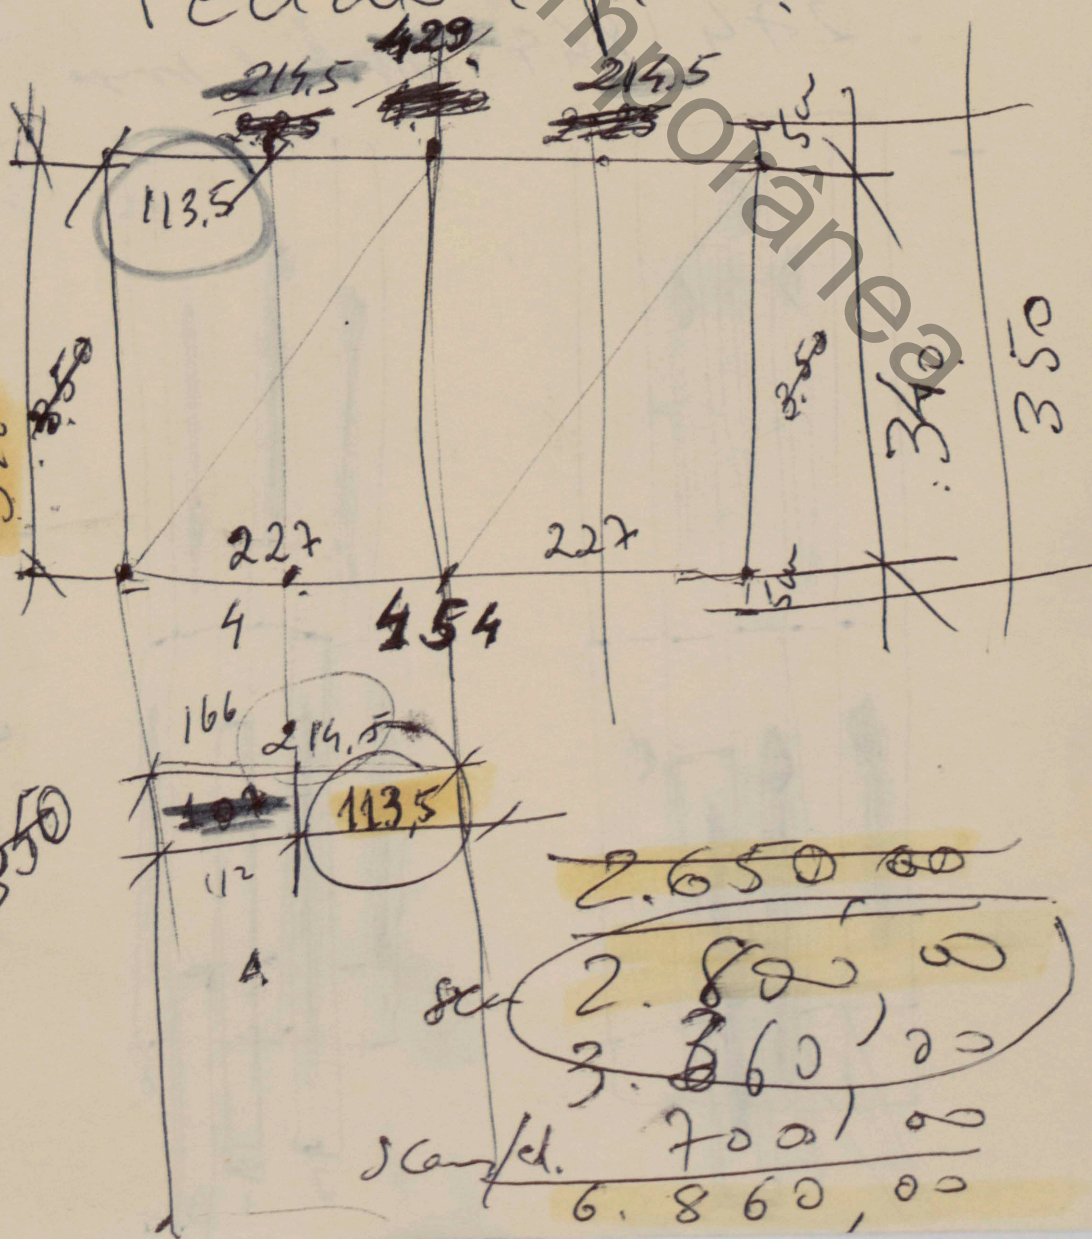 429
214,5
214.5
5cm
113,5
3.50
3.50
340
350
227
227
5cm
4
454
166
214,5
113,5
112
350
2.650 00
2.800,00
3.360,00
700,00
6.860,00
mporânea